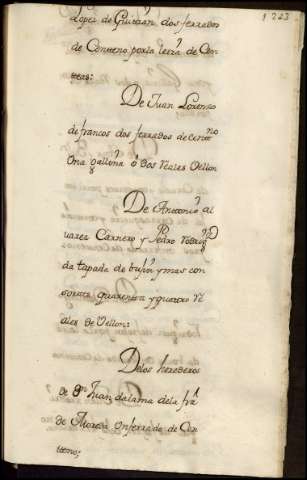 Lopez de Guitian dos ferrados
de Centeno por la letra de
teas:
De Juan Lorenso
de francos dos ferrados de centᵗᵉⁿᵒ
Una gallina ó dos reales Vellon
De Antonio al
uarez Carnero y Pedro Rodrigᶻ
da tapada de y mas con
sortes quarenta y quatro rˢ
ales de Vellon:
Delos herederos
de Dⁿ Juan dalama dela frᵃ
de Moreda un ferrado de Cen
teno: